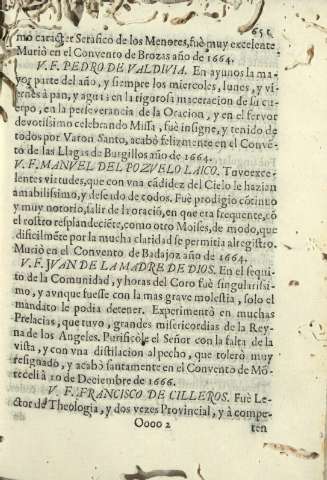 655
mo caracter Serafico de los Menores, fuè muy excelente.
Muriò en el Convento de Brozas año de 1664.
V. F. PEDRO DE VALDIVIA. En ayunos la ma-
yor parte del año, y siempre los miercoles, lunes, y vi-
ernès à pan, y agua; en la rigorosa maceracion de su cu-
erpo, en la perseverancia de la Oracion, y en el fervor
devotissimo celebrando Missa, fuè insigne, y tenido de
todos por Varon Santo, acabò felizmente en el Convē-
to de las Llagas de Burgillos año de 1664.
V. F. MANVEL DEL POZVELO LAICO. Tuvo exce-
lentes virtudes, que con vna cãdidez del Cielo le hazian
amabilissimo, y deseado de todos. Fuè prodigio cōtinuo
y muy notorio, salir de la oraciō, en que era frequente, cō
el rostro resplandeciēte, como otro Moises, de modo, que
dificilmēte por la mucha claridad se permitia al registro.
Muriò en el Convento de Badajoz año de 1664.
V. F. JVAN DE LA MADRE DE DIOS. En el sequito
de la Comunidad, y horas del Coro fuè singularissi-
mo, y aunque fuesse con la mas grave molestia, solo el
mandato le podia detener. Experimentò en muchas
Prelacias, que tuvo, grandes misericordias de la Rey-
na de los Angeles. Purificòle el Señor con la falta de la
vista, y con vna distilacion al pecho, que tolerò muy
resignado, y acabò santamente en el Convento de Mō-
teceli à 10 de Deciembre de 1666.
V. F. FRANCISCO DE CILLEROS. Fuè Le-
ctor de Theologia, y dos vezes Provincial, y à compe-
Oooo 2
ten